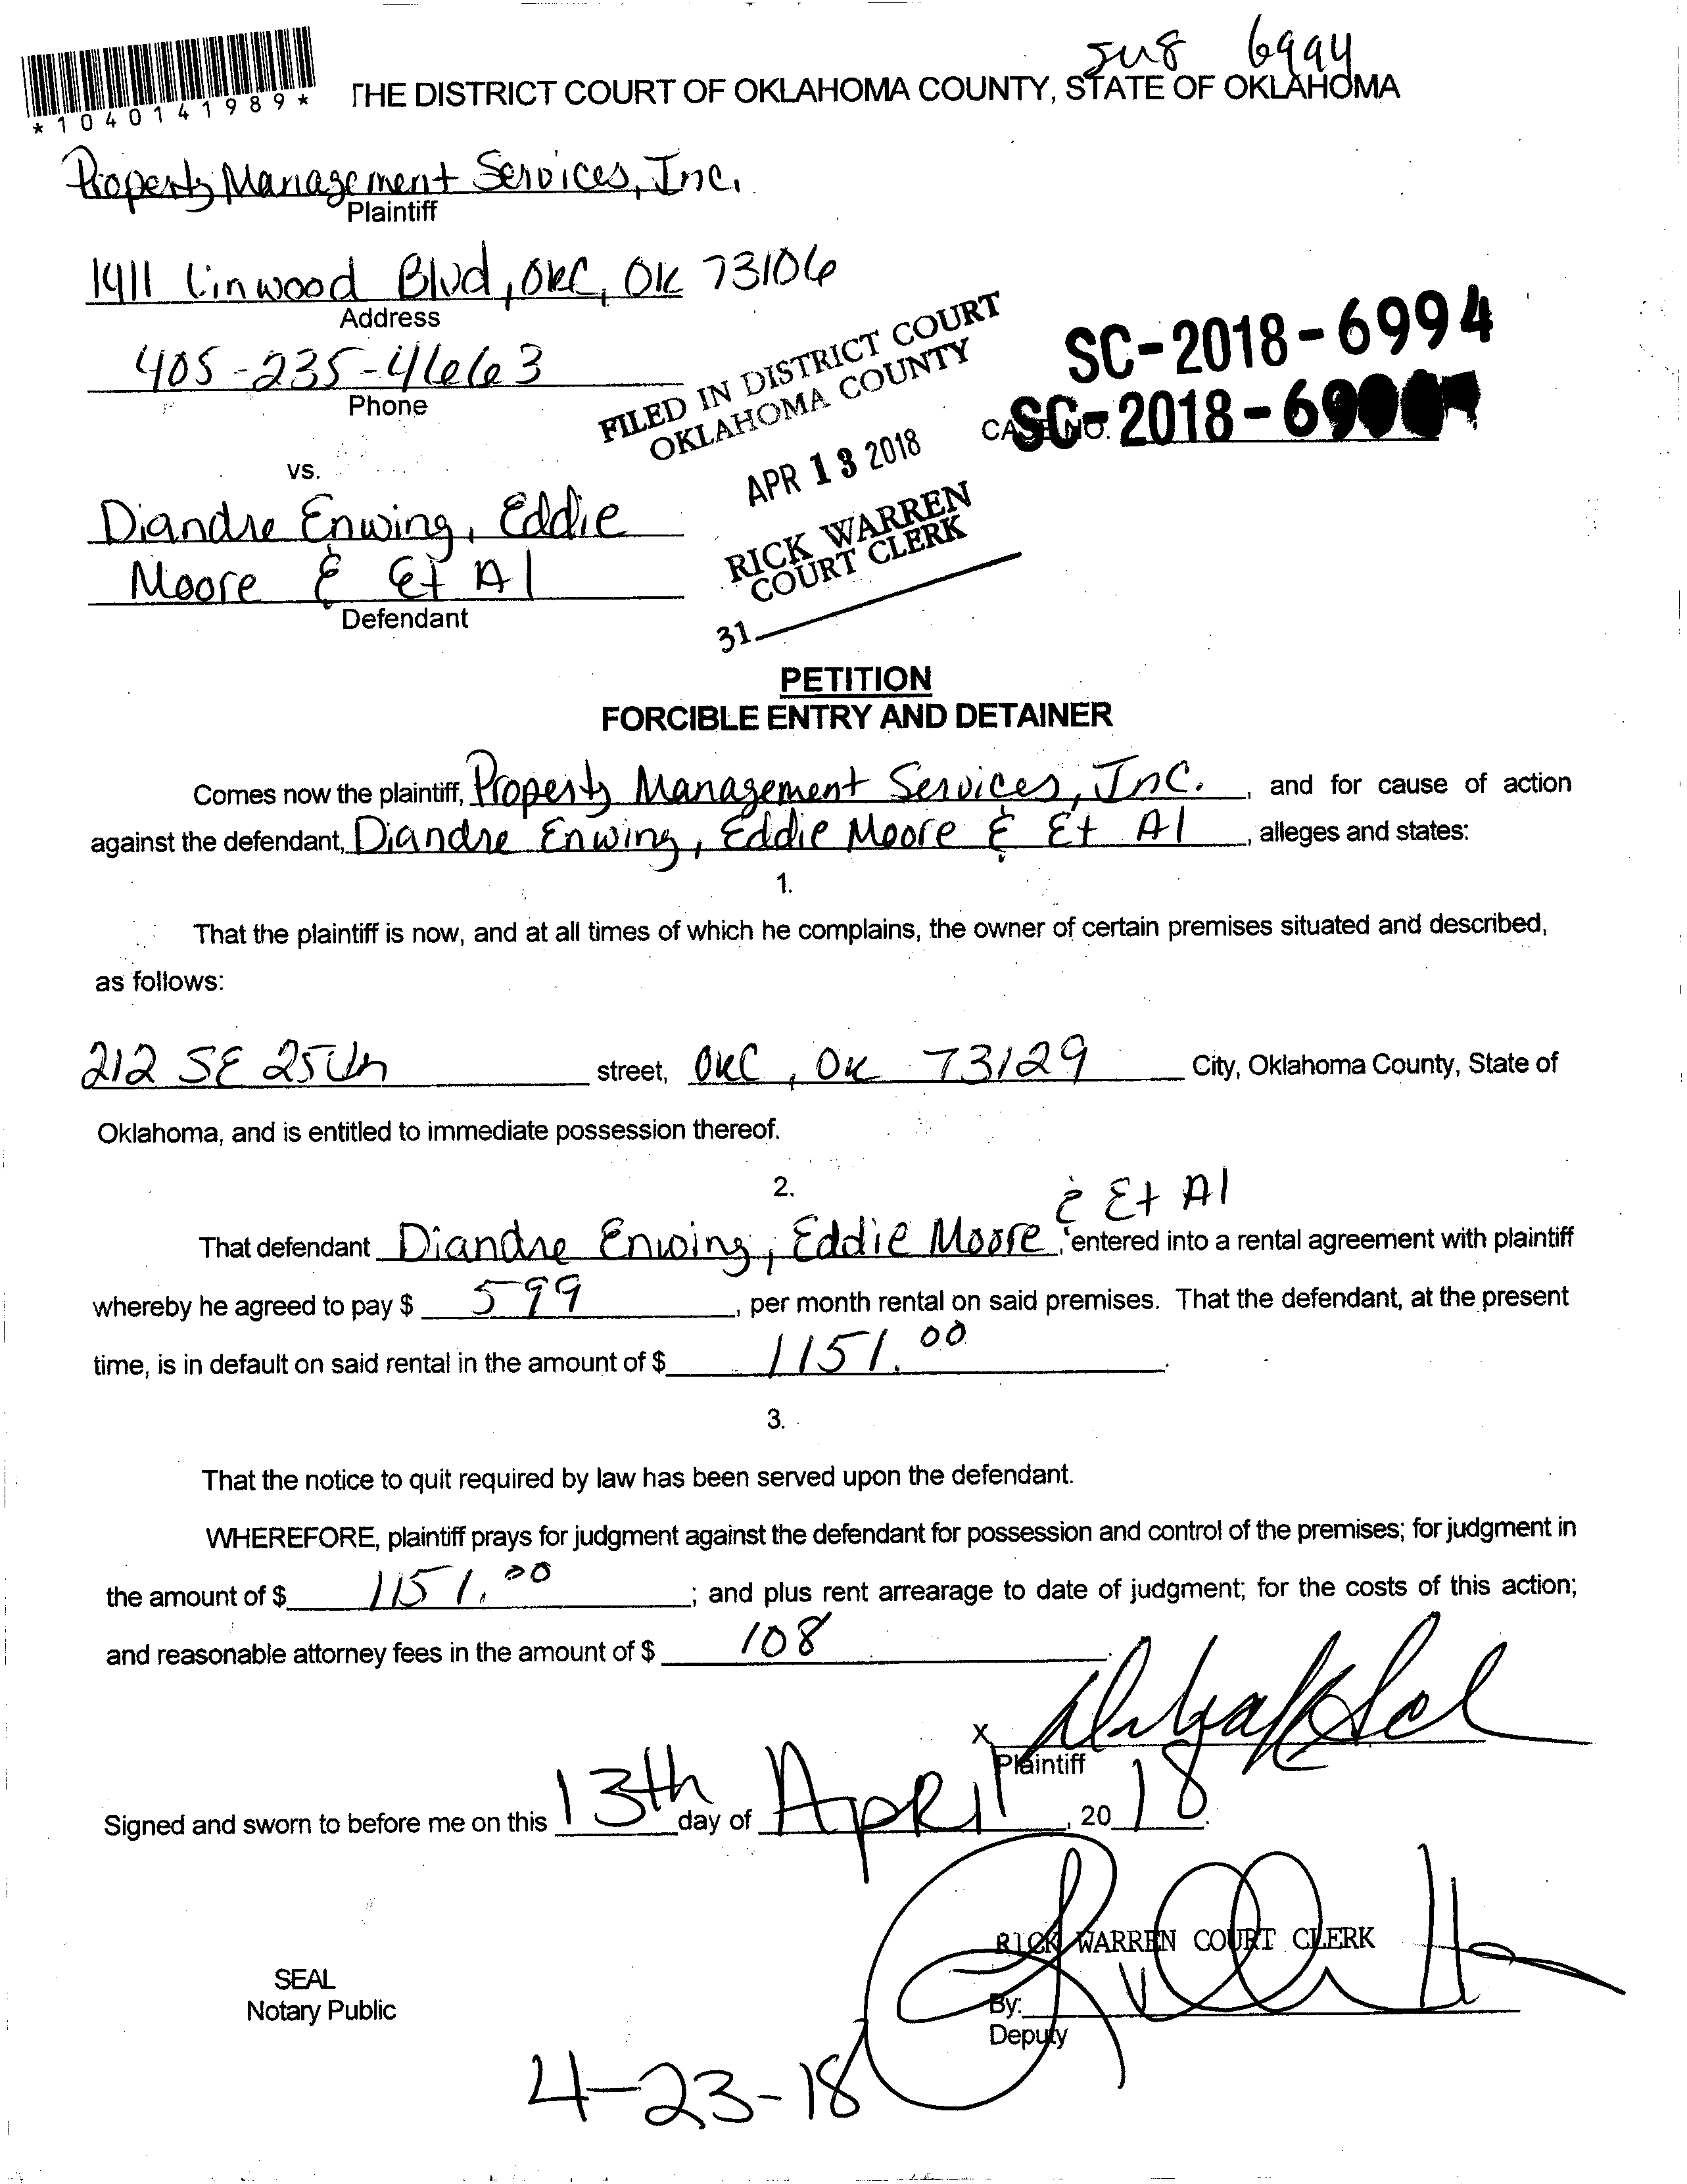 6994
*1040141989*
THE DISTRICT COURT OF OKLAHOMA COUNTY, STATE OF OKLAHOMA
Property Management Services, Inc.
Plaintiff
1411 Linwood Blvd, OKC, OK 73106
Address
405-235-4663
Phone
FILED IN DISTRICT COURT
OKLAHOMA COUNTY
APR 13 2018
RICK WARREN
COURT CLERK
31
SC-2018-6994
CASE NO. SC-2018-69
vs.
Diandre Enwing, Eddie
Moore & Et Al
Defendant
PETITION
FORCIBLE ENTRY AND DETAINER
Comes now the plaintiff, Property Management Services, Inc. , and for cause of action
against the defendant, Diandre Enwing, Eddie Moore & Et Al , alleges and states:
1.
That the plaintiff is now, and at all times of which he complains, the owner of certain premises situated and described,
as follows:
212 SE 25th street, OKC, OK 73129 City, Oklahoma County, State of
Oklahoma, and is entitled to immediate possession thereof.
2.
& Et Al
That defendant Diandre Enwing, Eddie Moore, entered into a rental agreement with plaintiff
whereby he agreed to pay $ 599 , per month rental on said premises. That the defendant, at the present
time, is in default on said rental in the amount of $ 1151.00 .
3.
That the notice to quit required by law has been served upon the defendant.
WHEREFORE, plaintiff prays for judgment against the defendant for possession and control of the premises; for judgment in
the amount of $ 1151.00 ; and plus rent arrearage to date of judgment; for the costs of this action;
and reasonable attorney fees in the amount of $ 108 .
X
Plaintiff
Signed and sworn to before me on this 13th day of April , 20 18.
RICK WARREN COURT CLERK
SEAL
Notary Public
By:
Deputy
4-23-18